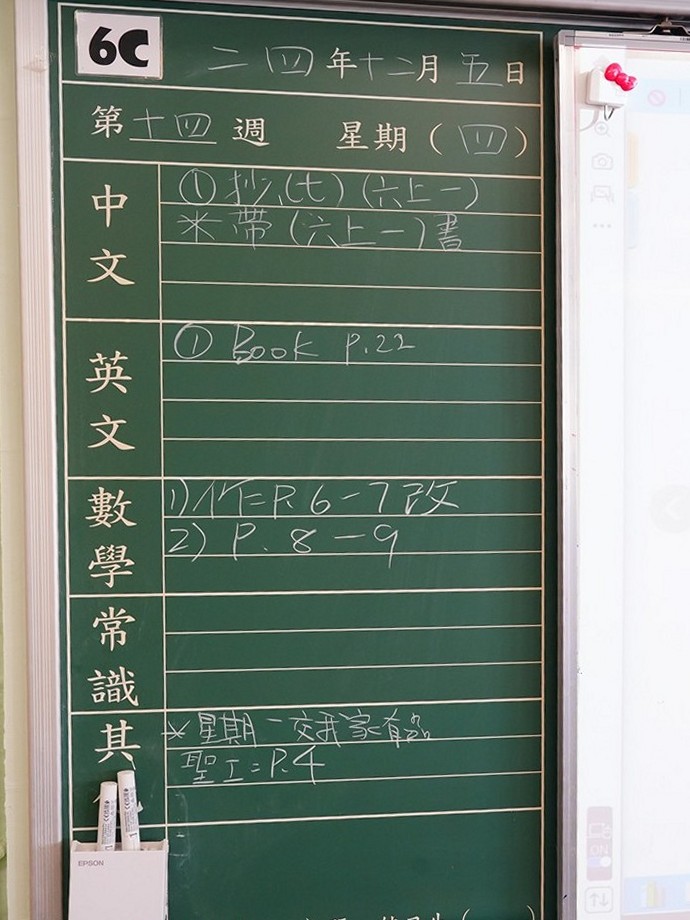 6C
二四年十二月五日
第十四週 星期(四)
中文
① 抄(七)(六上一)
*帶(六上一)書
英文
① Book P.22
數學
1)作=P.6-7改
2) P.8-9
常識
其
*星期一交我家有品
聖工=P.4
EPSON
ON